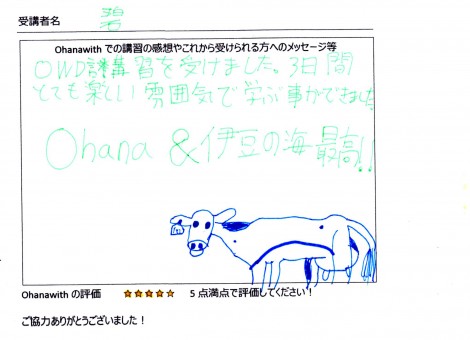 受講者名 碧
Ohanawith での講習の感想やこれから受けられる方へのメッセージ等
OWD講習を受けました。3日間
とても楽しい雰囲気で学ぶ事ができました
Ohana &伊豆の海最高!!
Ohanawith の評価 ★★★★★ 5 点満点で評価してください!
ご協力ありがとうございました!